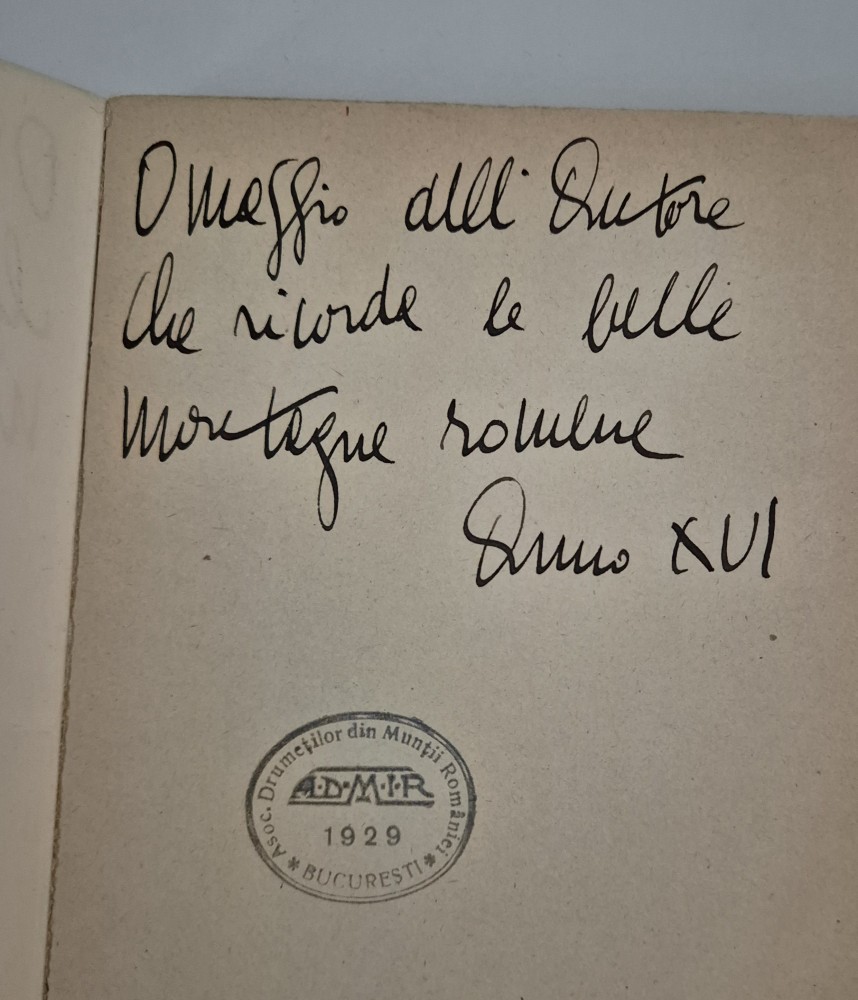 Omaggio dell'Autore
che ricorda le belle
montagne romene
Anno XVI
Asoc. Drumeților din Munții României
A·D·M·I·R
1929
* BUCUREȘTI *